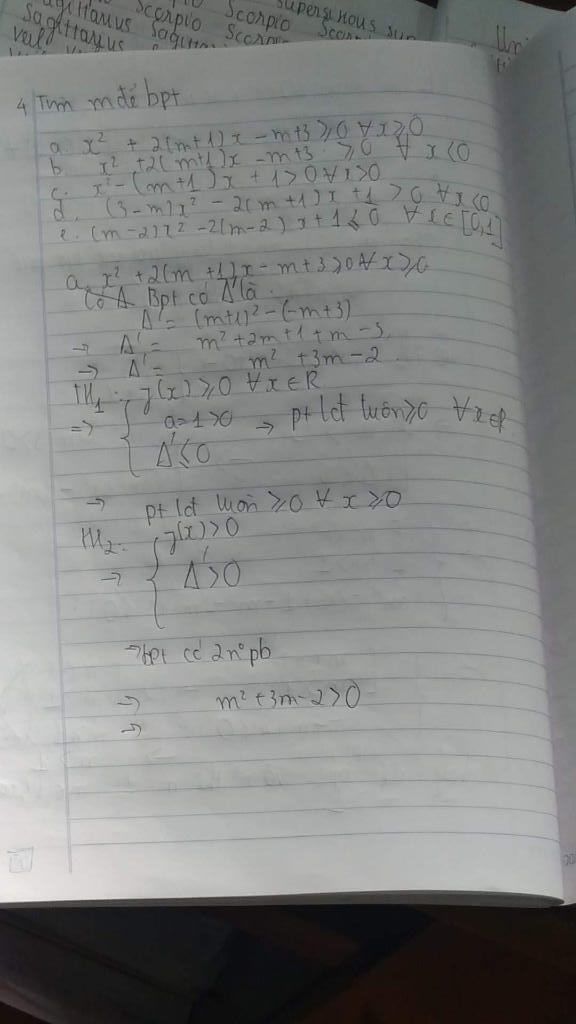 agittarius Scorpio Scorpio supersinous sup
Sagittarius Sagitta Scorpio
Uni
4 Tìm m để bpt
a. x² + 2(m+1)x - m+3 ≥0 ∀x≥0
b. x² +2(m+1)x -m+3 ≥0 ∀ x<0
c. x² -(m+1)x + 1>0 ∀x>0
d. (3-m)x² - 2(m+1)x +1 >0 ∀x<0
e. (m-2)x² -2(m-2) x+1≤0 ∀x∈[0,1]
a, x² +2(m+1)x - m+3≥0 ∀x≥0
Có Δ Bpt có Δ' là
Δ' = (m+1)² -(-m+3)
→ Δ' = m² +2m +1 +m -3
→ Δ' = m² +3m -2
TH1: f(x) ≥0 ∀x∈R
=> { a=1>0 → pt lđ luôn ≥0 ∀x∈R
Δ' ≤0
→ pt lđ luôn ≥0 ∀ x≥0
TH2: f(x) >0
→ { Δ' >0
→ bpt có 2n° pb
→ m² +3m-2 >0
→